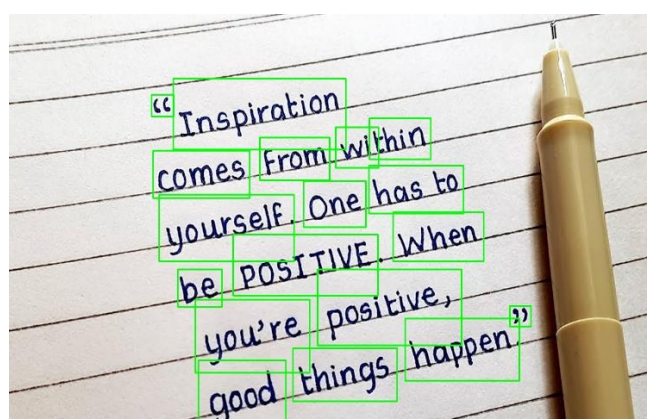 “Inspiration
comes from within
yourself. One has to
be POSITIVE. When
you're positive,
good things happen”